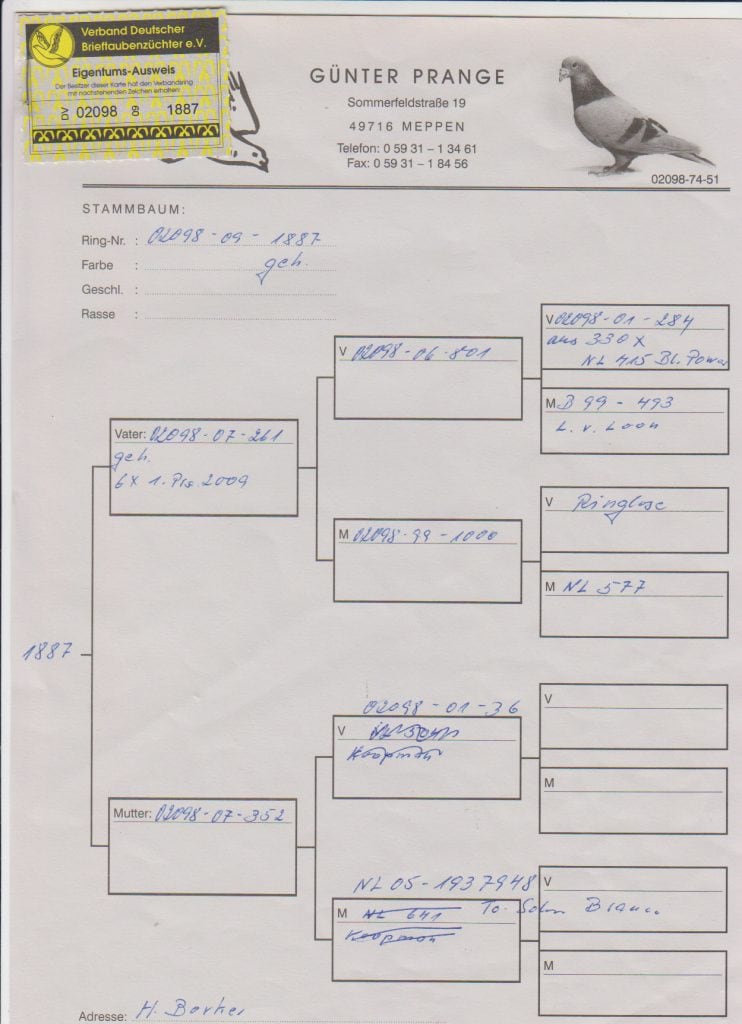 Verband Deutscher
Brieftaubenzüchter e.V.
Eigentums-Ausweis
Der Besitzer dieser Karte hat den Verbandsring
mit nachstehenden Zeichen erhalten:
DV 02098 09 1887
GÜNTER PRANGE
Sommerfeldstraße 19
49716 MEPPEN
Telefon: 0 59 31 – 1 34 61
Fax: 0 59 31 – 1 84 56
02098-74-51
STAMMBAUM:
Ring-Nr. : 02098-09-1887
Farbe : geh.
Geschl. :
Rasse :
V 02098-01-284
aus 330 x
NL 415 Bl. Power
V 02098-06-801
M B 99-493
L. v. Loon
Vater: 02098-07-261
geh.
6x 1. Prs. 2009
V Ringlose
M 02098-99-1000
M NL 577
1887
V
02098-01-36
V
Koopman
M
Mutter: 02098-07-352
V
NL 05-1937948
M NL 641
To. Sohn
Koopman
M
Adresse: H.